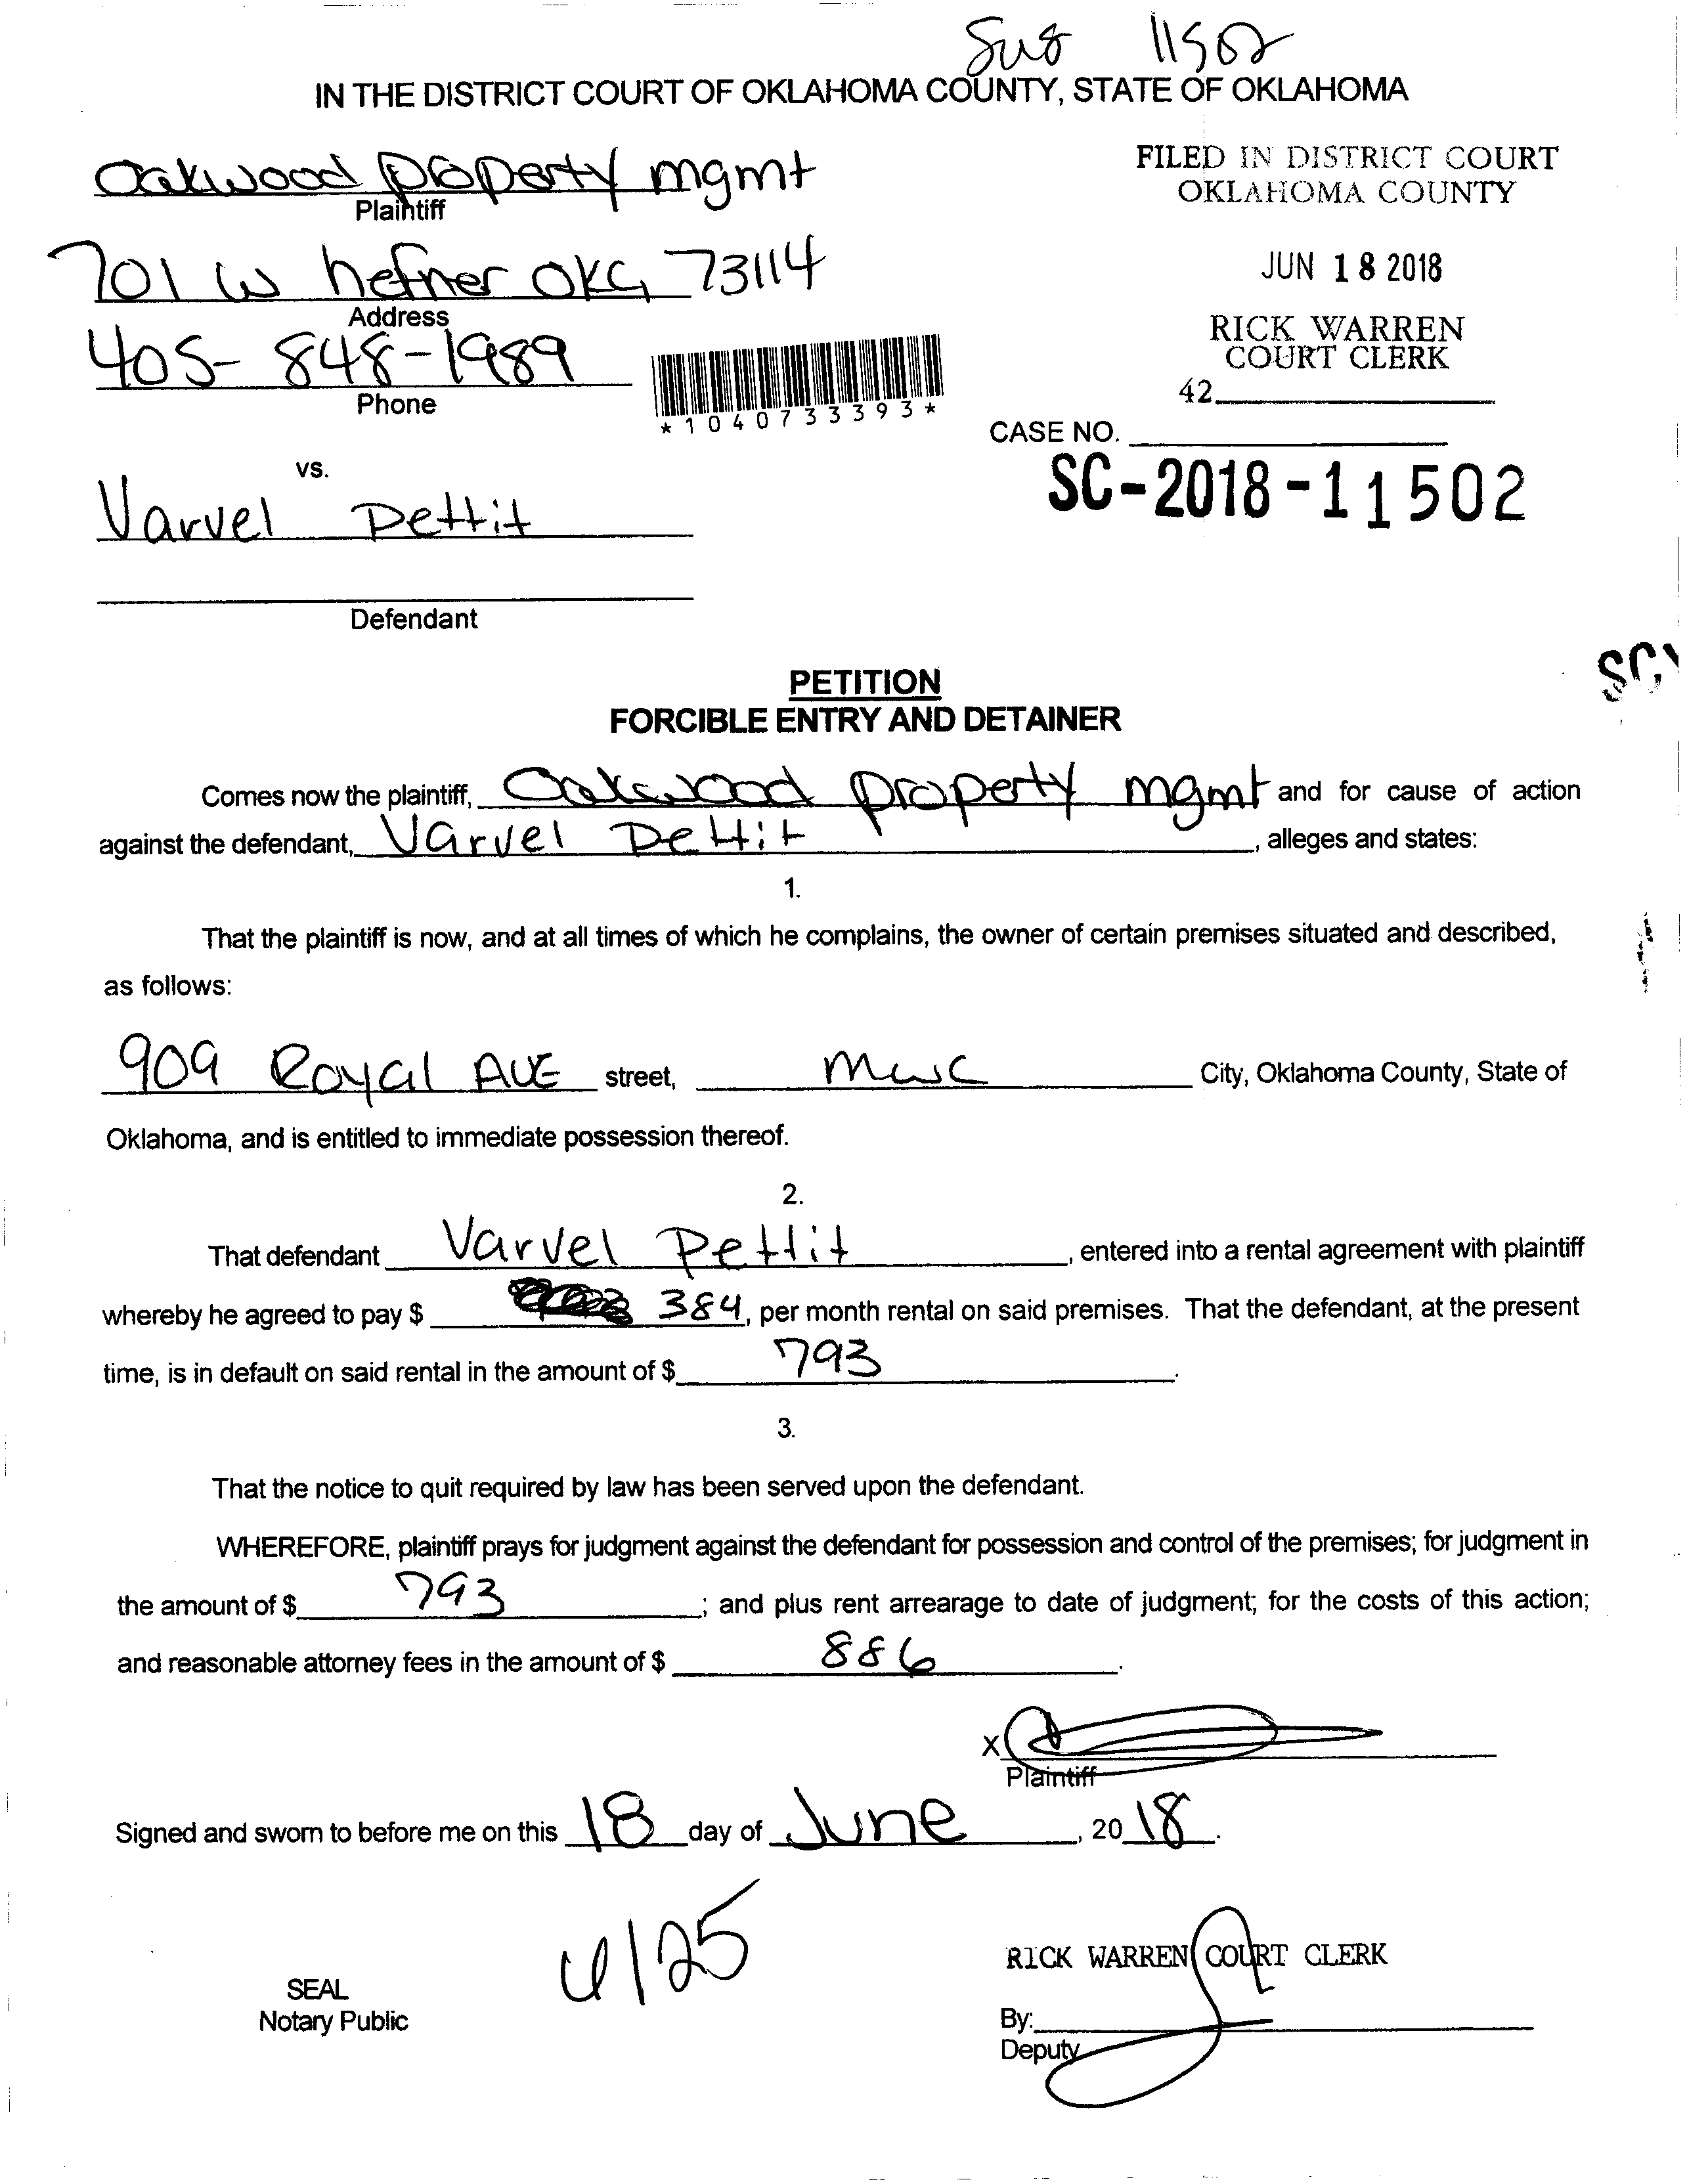 11502
IN THE DISTRICT COURT OF OKLAHOMA COUNTY, STATE OF OKLAHOMA
Oakwood property mgmt
Plaintiff
FILED IN DISTRICT COURT
OKLAHOMA COUNTY
701 W hefner OKC, 73114
Address
JUN 18 2018
405-848-1989
Phone
RICK WARREN
COURT CLERK
42
*1040733393*
CASE NO.
SC-2018-11502
vs.
Varvel Pettit
Defendant
SC
PETITION
FORCIBLE ENTRY AND DETAINER
Comes now the plaintiff, Oakwood property mgmt and for cause of action
against the defendant, Varvel Pettit, alleges and states:
1.
That the plaintiff is now, and at all times of which he complains, the owner of certain premises situated and described,
as follows:
909 Royal AVE street, MWC City, Oklahoma County, State of
Oklahoma, and is entitled to immediate possession thereof.
2.
That defendant Varvel Pettit, entered into a rental agreement with plaintiff
whereby he agreed to pay $ 384, per month rental on said premises. That the defendant, at the present
time, is in default on said rental in the amount of $ 793.
3.
That the notice to quit required by law has been served upon the defendant.
WHEREFORE, plaintiff prays for judgment against the defendant for possession and control of the premises; for judgment in
the amount of $ 793; and plus rent arrearage to date of judgment; for the costs of this action;
and reasonable attorney fees in the amount of $ 886.
X
Plaintiff
Signed and sworn to before me on this 18 day of June, 2018.
SEAL
Notary Public
RICK WARREN COURT CLERK
By:
Deputy